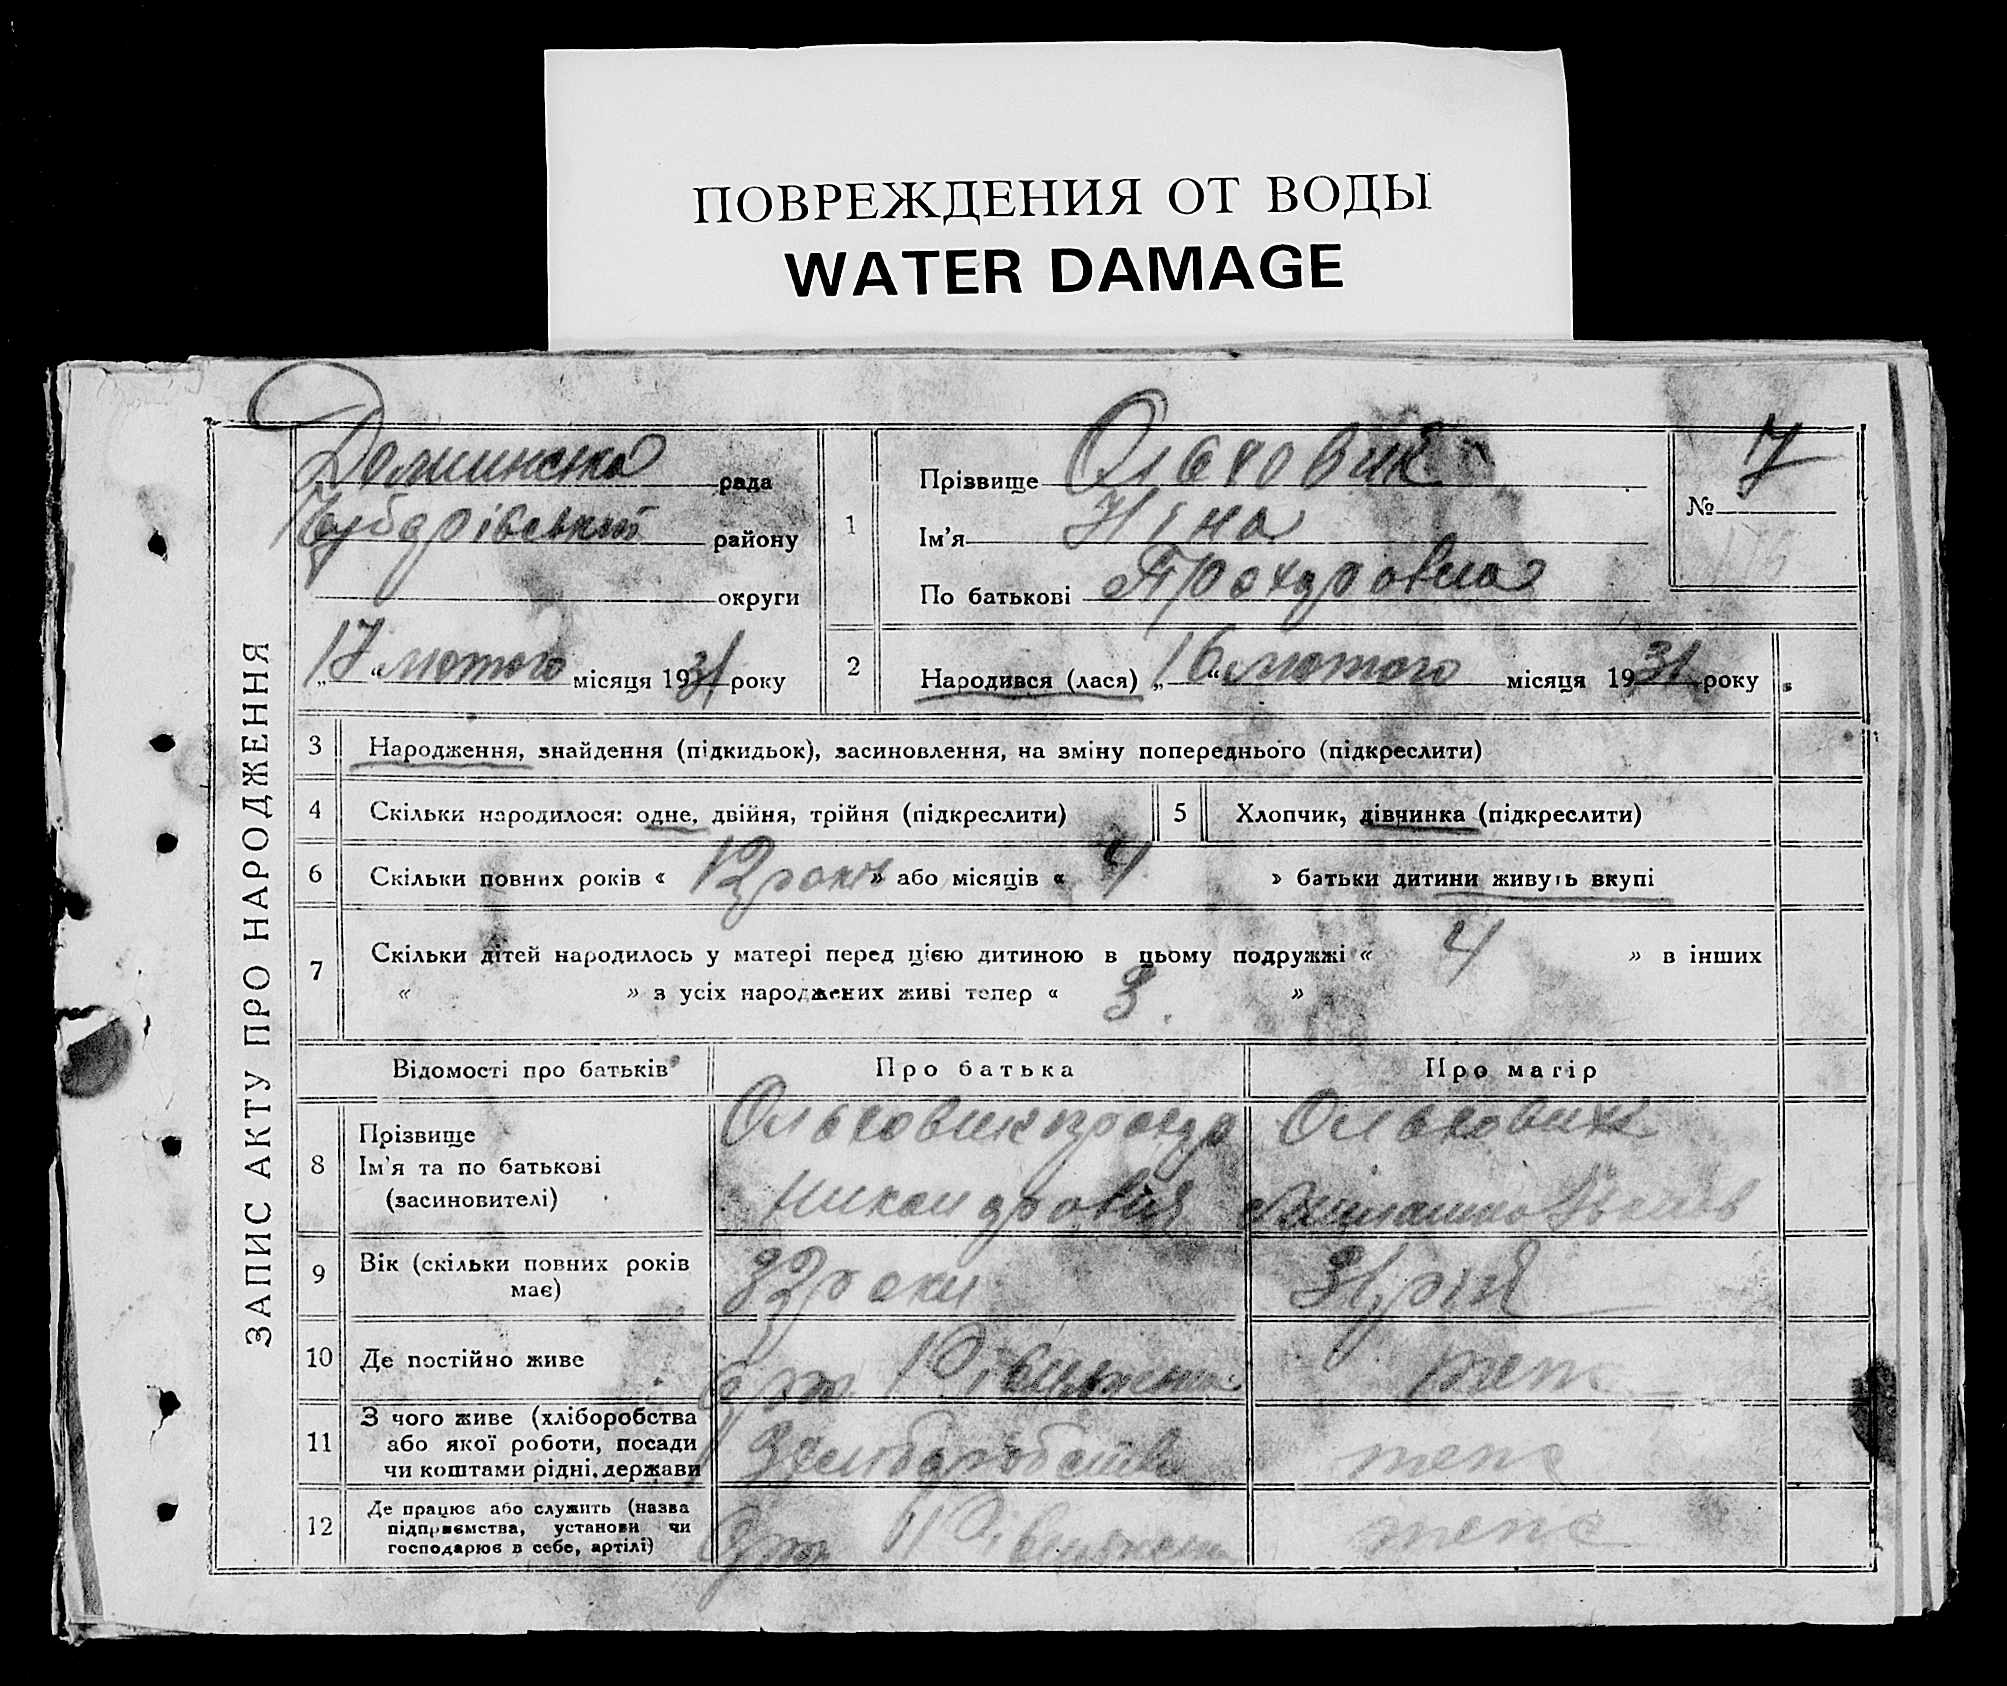 ПОВРЕЖДЕНИЯ ОТ ВОДЫ
WATER DAMAGE
ЗАПИС АКТУ ПРО НАРОДЖЕННЯ
рада
району
округи
„17“ лютого місяця 1931 року
1
Прізвище Ольховик
Ім'я Ніна
По батькові Прохоровна
№ 7
2
Народився (лася) „16“ лютого місяця 1931 року
3 Народження, знайдення (підкидьок), засиновлення, на зміну попереднього (підкреслити)
4 Скільки народилося: одне, двійня, трійня (підкреслити)
5 Хлопчик, дівчинка (підкреслити)
6 Скільки повних років « 12 роки » або місяців « 4 » батьки дитини живуть вкупі
7 Скільки дітей народилось у матері перед цією дитиною в цьому подружжі « 4 » в інших
« » з усіх народжених живі тепер « 3. »
Відомості про батьків Про батька Про матір
8 Прізвище
Ім'я та по батькові
(засиновителі)
Ольховик
Никандрович
Ольховик
9 Вік (скільки повних років
має)
32 роки
31 рік
10 Де постійно живе
11 З чого живе (хліборобства
або якої роботи, посади
чи коштами рідні, держави
12 Де працює або служить (назва
підприємства, установи чи
господарює в себе, артілі)